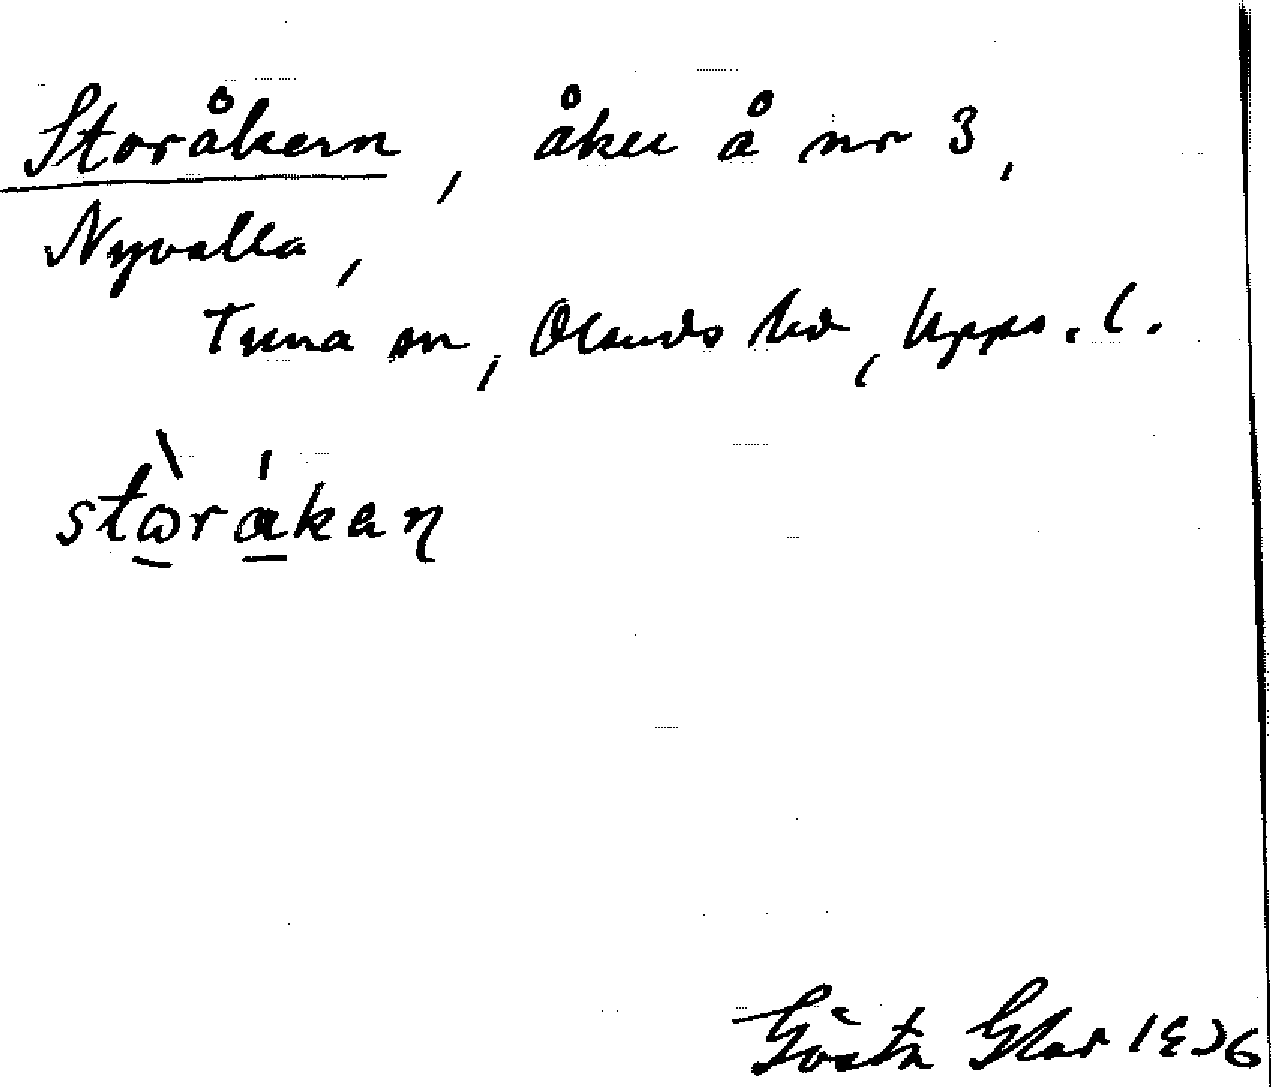 Storåkern, åker å nr 3,
Nyvalla,
Tuna sn, Olands hd, Upps. l.
stὼrákaɳ
Gösta Glar 1936